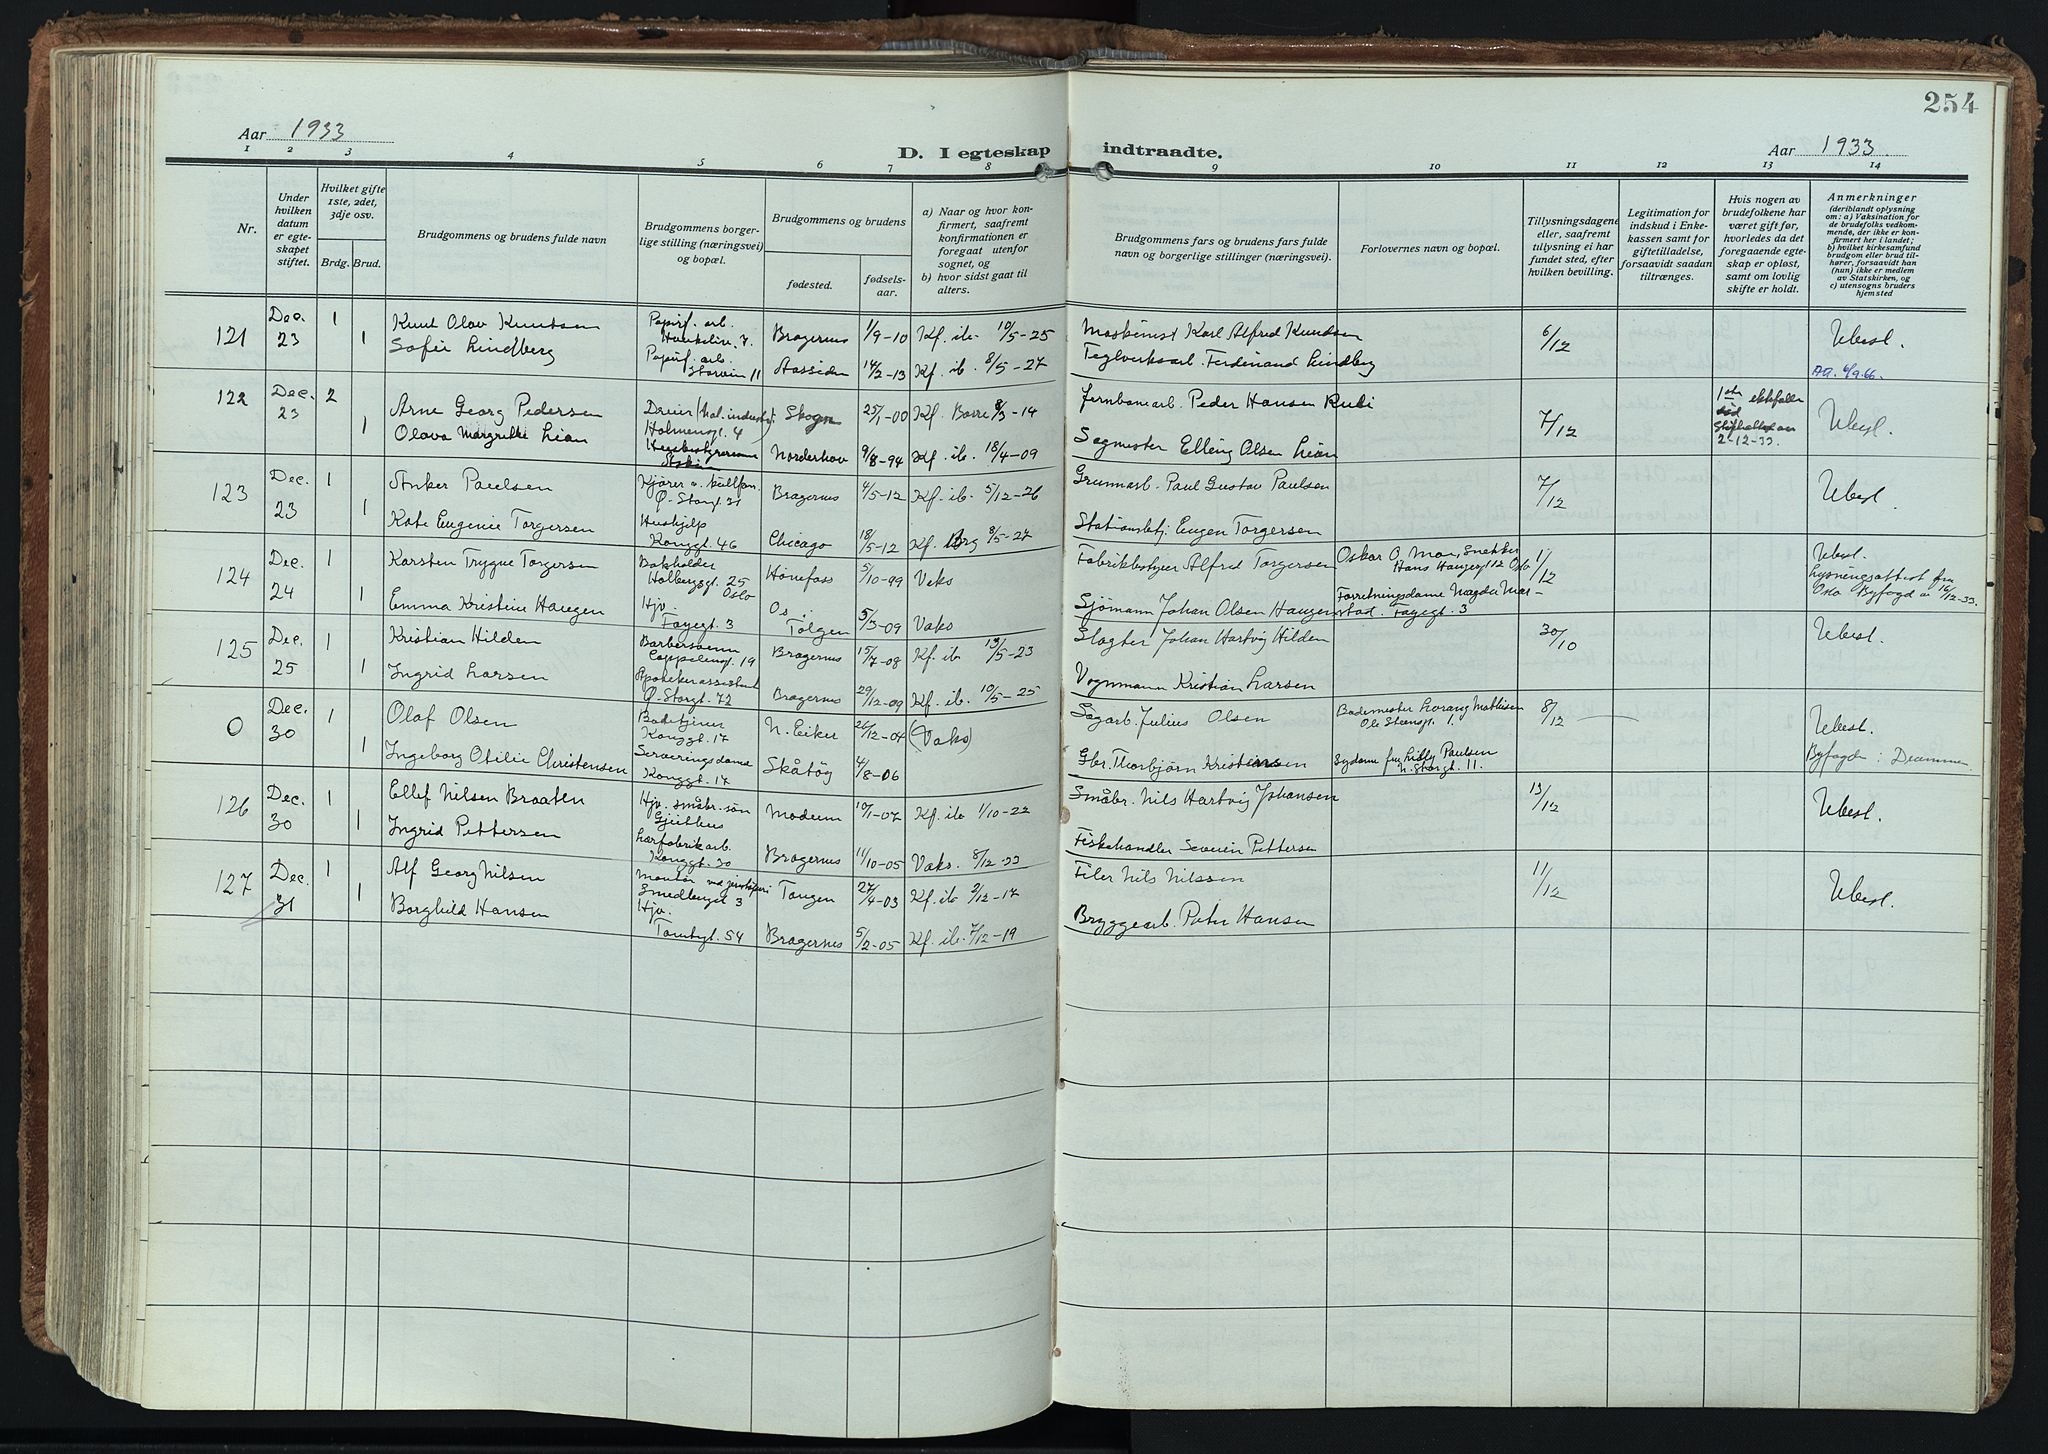 254
Aar 1933
D. I egteskap indtraadte.
Aar 1933
1 2 3 4 5 6 7 8 9 10 11 12 13 14
Nr.
Under hvilken datum er egteskapet stiftet.
Hvilket gifte 1ste, 2det, 3dje osv.
Brdg. Brud.
Brudgommens og brudens fulde navn
Brudgommens borgerlige stilling (næringsvei) og bopæl.
Brudgommens og brudens
fødested.
fødselsaar.
a) Naar og hvor konfirmert, saafremt konfirmationen er foregaat utenfor sognet, og
b) hvor sidst gaat til alters.
Brudgommens fars og brudens fars fulde navn og borgerlige stillinger (næringsvei).
Forlovernes navn og bopæl.
Tillysningsdagene eller, saafremt tillysning ei har fundet sted, efter hvilken bevilling.
Legitimation for indskud i Enkekassen samt for giftetilladelse, forsaavidt saadan tiltrænges.
Hvis nogen av brudefolkene har været gift før, hvorledes da det foregaaende egteskap er opløst, samt om lovlig skifte er holdt.
Anmerkninger
(deriblandt oplysning om: a) Vaksination for de brudefolks vedkommende, der ikke er konfirmert her i landet; b) hvilket kirkesamfund brudgom eller brud tilhører, forsaavidt han (hun) ikke er medlem av Statskirken, og c) utensogns bruders hjemsted
121 Dec. 23 1 Knut Olav Knutsen Papirf. arb. Bragernes 1/9-10 Kf. ib. 10/5-25 Maskinist Karl Alfred Knudsen 6/12 Ubesl.
1 Sofie Lindberg Papirf. arb. Storvein 11 Aassiden 14/2-13 Kf. ib. 8/5-27 Teglverksarb. Ferdinand Lindberg AA. 6/9.66.
122 Dec. 23 2 Arne Georg Pedersen Dreier Holmensgt. 4 Skogn 25/1-00 Kf. Borre 8/3-14 Jernbanearb. Peder Hansen Rubi 7/12 2-12-33. Ubesl.
1 Olava Margrethe Lian Husbestyrerinne Norderhov 9/8-94 Kf. ib. 18/4-09 Sagmester Elling Olsen Lian
123 Dec. 23 1 Anker Paulsen Kjører v. Ø. Storgt. 31 Bragernes 4/5-12 Kf. ib. 5/12-26 Grunnarb. Paul Gustav Paulsen 7/12 Ubesl.
1 Kate Eugenie Torgersen Hushjelp Konggt. 46 Chicago 18/5-12 Kf. Brg 8/5-27 Stationsbetj. Eugen Torgersen
124 Dec. 24 1 Karsten Trygve Torgersen Bokholder Holbergsgt. 25 Oslo Hønefoss 5/10-99 Vaks Fabrikkbestyrer Alfred Torgersen Oskar O. Moe, Snekker Hans Haugesgt 12 Oslo 1/12 Ubesl. Lysningsattest fra Oslo Byfogd av 16/12-33.
1 Emma Kristine Haugen Hjv. Fayegt. 3 Os i Tolgen 5/3-09 Vaks Sjömann Johan Olsen Haugen Forretningsdame Magda Marstad. Fayegt. 3
125 Dec. 25 1 Kristian Hilden Barbersvenn Cappelensgt. 19 Bragernes 15/7-08 Kf. ib. 13/5-23 Slagter Johan Hartvig Hilden 30/10 Ubesl.
1 Ingrid Larsen Apotekerassistent Ø. Storgt. 72 Bragernes 29/12-09 Kf. ib. 10/5-25 Vognmann Kristian Larsen
0 Dec. 30 1 Olaf Olsen Badetjener Konggt. 17 N. Eiker 26/12-04 (Vaks) Sagarb. Julius Olsen Bademester Lorang Mathisen Ole Steensgt. 1. 8/12 Ubesl.
1 Ingeborg Otilie Christensen Serveringsdame Konggt. 17 Skåtøy 4/8-06 Gbr. Thorbjørn Kristensen Sydame frk. Lilly Paulsen N. Storgt. 11. Byfogden i Drammen.
126 Dec. 30 1 Ellef Nilsen Braaten Hjv. småbr. søn Geithus Modum 10/1-07 Kf. ib 1/10-22 Småbr. Nils Hartvig Johansen 13/12 Ubesl.
1 Ingrid Pettersen Lærfabrikarb. Konggt. 30 Bragernes 11/10-05 Vaks. 8/12-33 Fiskehandler Severin Pettersen
127 Dec. 31 1 Alf Georg Nilsen Montør ved Smedbergst 3 Tangen 27/4-03 Kf. ib 2/12-17 Filer Nils Nilssen 11/12 Ubesl.
1 Borghild Hansen Hjv. Tomtegt. 54 Bragernes 5/2-05 Kf. ib. 7/12-19 Bryggearb. Peter Hansen